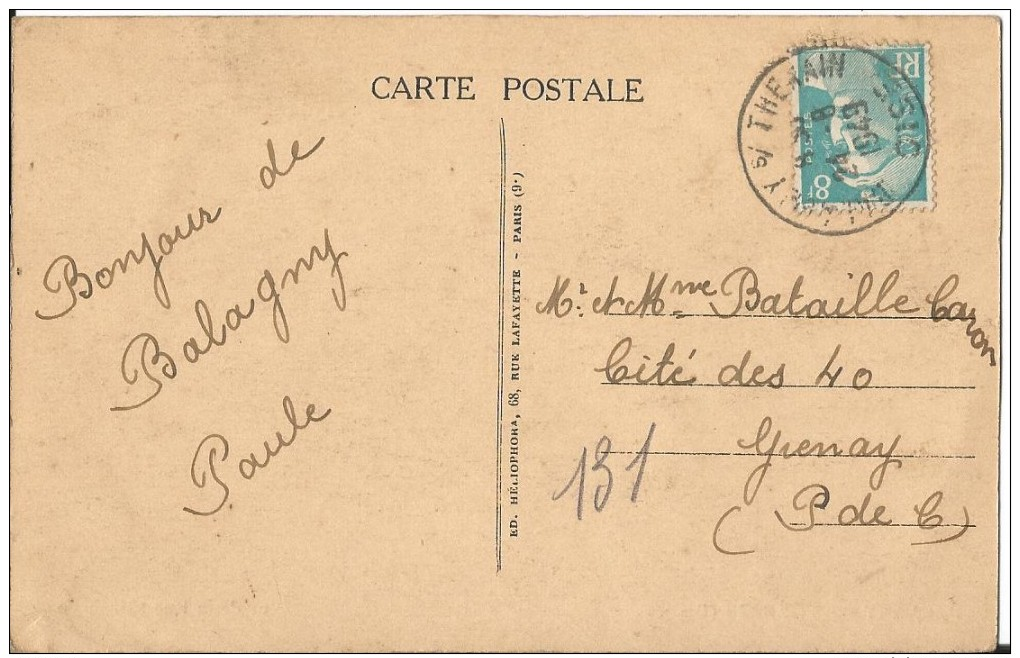 CARTE POSTALE
Bonjour de
Balagny
Paule
ED. HÉLIOPHORA, 68, RUE LAFAYETTE - PARIS (9e)
Mr et Mme Bataille Caron
Cité des 40
Grenay
(P de C)
131
RF
POSTES
8f
THERAIN
OISE